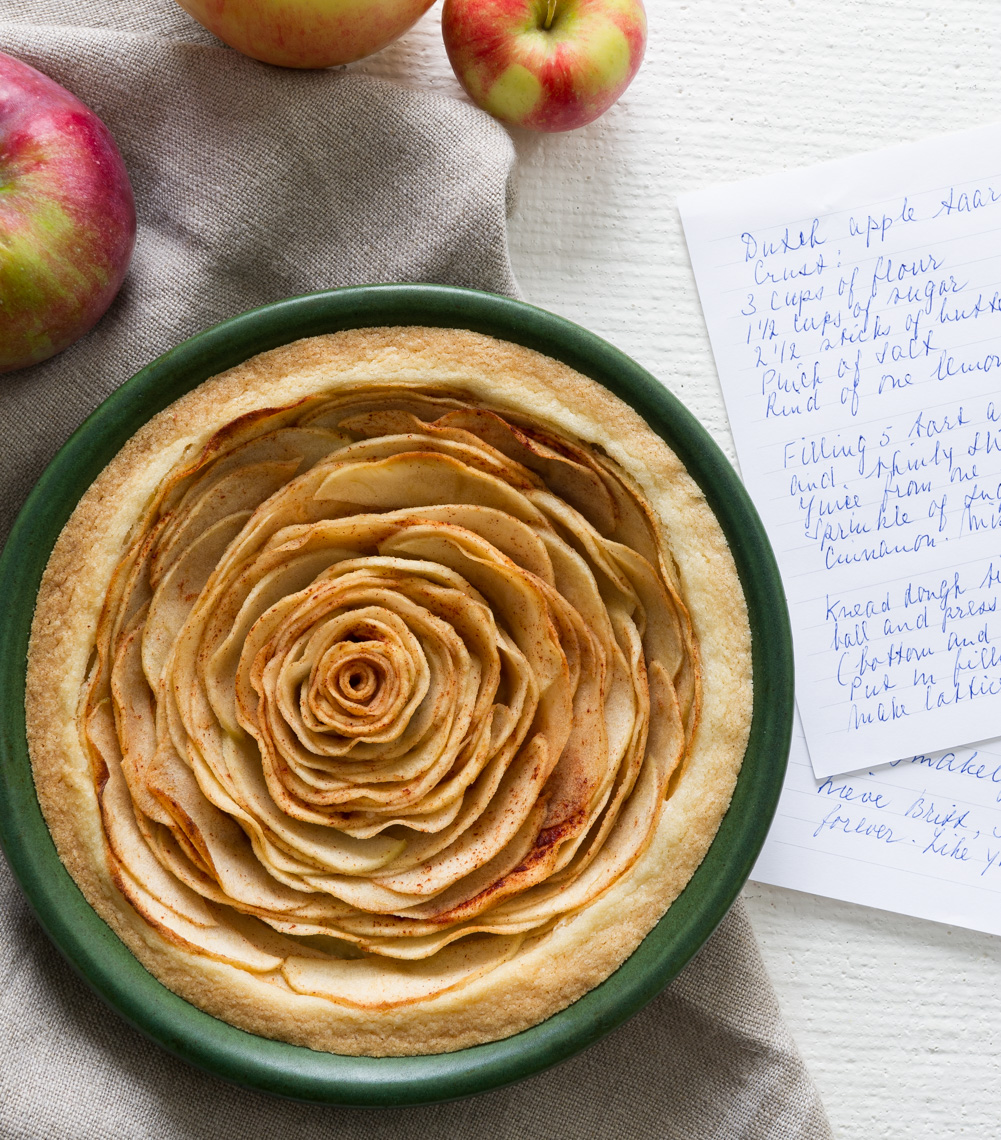 Dutch apple taar
Crust:
3 cups of flour
1 1/2 cups of sugar
2 1/2 sticks of butte
Pinch of salt
Rind of one lemon
Filling 5 tart a
and thinly
Yuice from one
Sprinkle of
Cinnamon. Mi
Knead dough
ball and press
(bottom and
Put in fill
make lattic
make
Lieve Britt,
forever. Like y